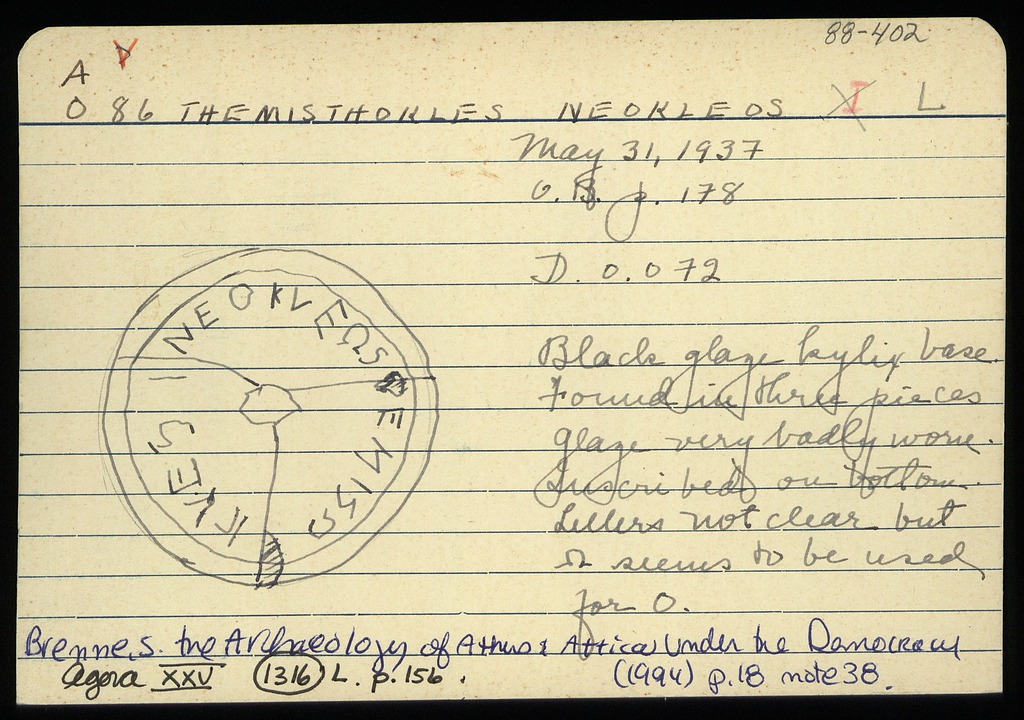 88-402
A
O 86 THEMISTHOKLES NEOKLEOS I L
May 31, 1937
O.B. p. 178
D. 0.072
NEOKLEΩS
EMIS
KLES
Black glaze kylix base.
Found in three pieces
Glaze very badly worn.
Inscribed on bottom.
Letters not clear but
Ω seems to be used
for O.
Brenne, S. the Archaeology of Athens & Attica Under the Democracy
Agora XXV 1316 L. p. 156. (1994) p.18 note 38.